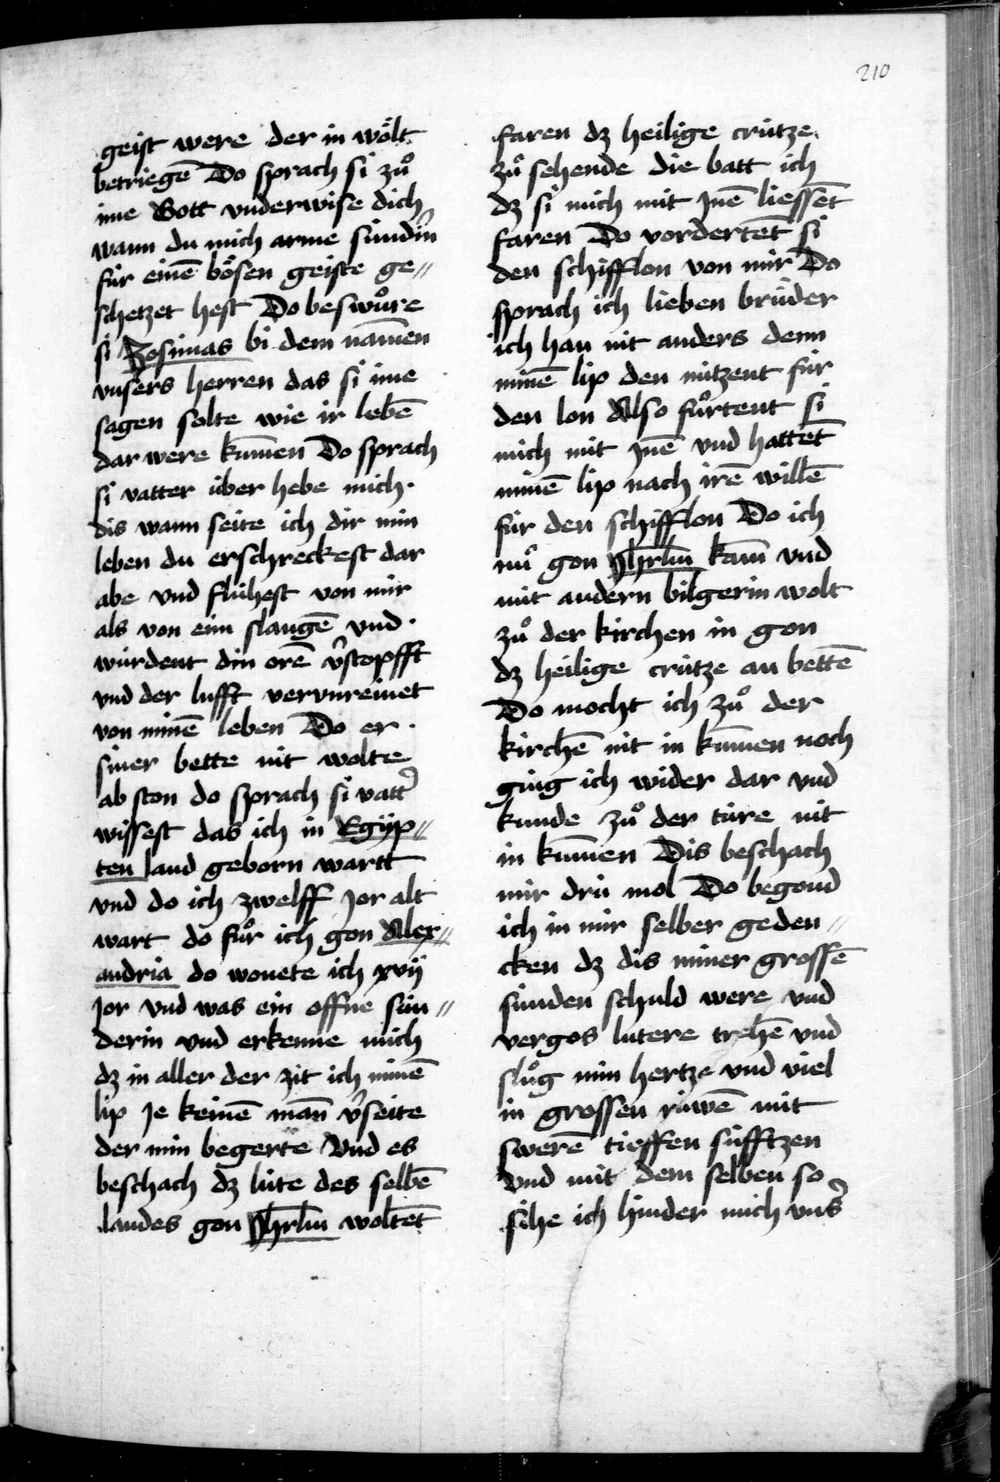 210
geist were der in wölt
betriegē Do sprach si zuͦ
ime Gott vnderwise dich
wann du mich arme sündīn
für einē bösen geiste ge〃
schetzet hest Do beswuͦre
si Zosimas bi dem nam̄en
vnsers herren das si ime
sagen solte wie ir lebē
dar were kum̄en Do sprach
si vatter über hebe mich·
dis wann seite ich dir min
leben du erschreckest dar
abe vnd flühest von mir
als von eim slangē vnd·
würdent din orē v̉stopfft
vnd der lufft vervnreinet
von minē leben Do er·
siner bette nit wolte
ab ston do sprach si vatt̉
wissest das ich in Egÿp〃
ten land geborn wartt
vnd do ich zwelff Jor alt
wart do fuͦr ich gon Alex〃
andria do wonete ich xvij
Jor vnd was ein offne sün〃
derin vnd erkenne mich
dz in aller der zit ich minē
lip Je keinē man̄ v̉seite
der min begerte Vnd es
beschach dz lüte des selbē
landes gon Jhrl̄m woltēt
faren dz heilige crütze
zuͦ sehende die batt ich
dz si mich mit Jnē liessēt
faren Do vordertēt si
den schifflon von mir Do
sprach ich lieben brüder
ich han nit anders denn
minē lip den nützent für
den lon Also fuͦrtent si
mich mit Jnē vnd hattēt
minē lip nach irē willē
für den schifflon Do ich
nuͦ gon Jhrl̄m kam̄ vnd
mit andern bilgerin wolt
zuͦ der kirchen in gon
dz heilige crütze an bettē
Do mocht ich zuͦ der
kirchē nit in kum̄en noch
ging ich wider dar vnd
kunde zuͦ der türe nit
in kum̄en Dis beschach
mir drü mol Do begond
ich in mir selber geden〃
cken dz dis miner grossē
sünden schuld were vnd
vergos lutere trehē vnd
sluͦg min hertze vnd viel
in grossen rüwē mit
swerē tieffen süfftzen
vnd mit dem selben so
sihe ich hinder mich vns̉